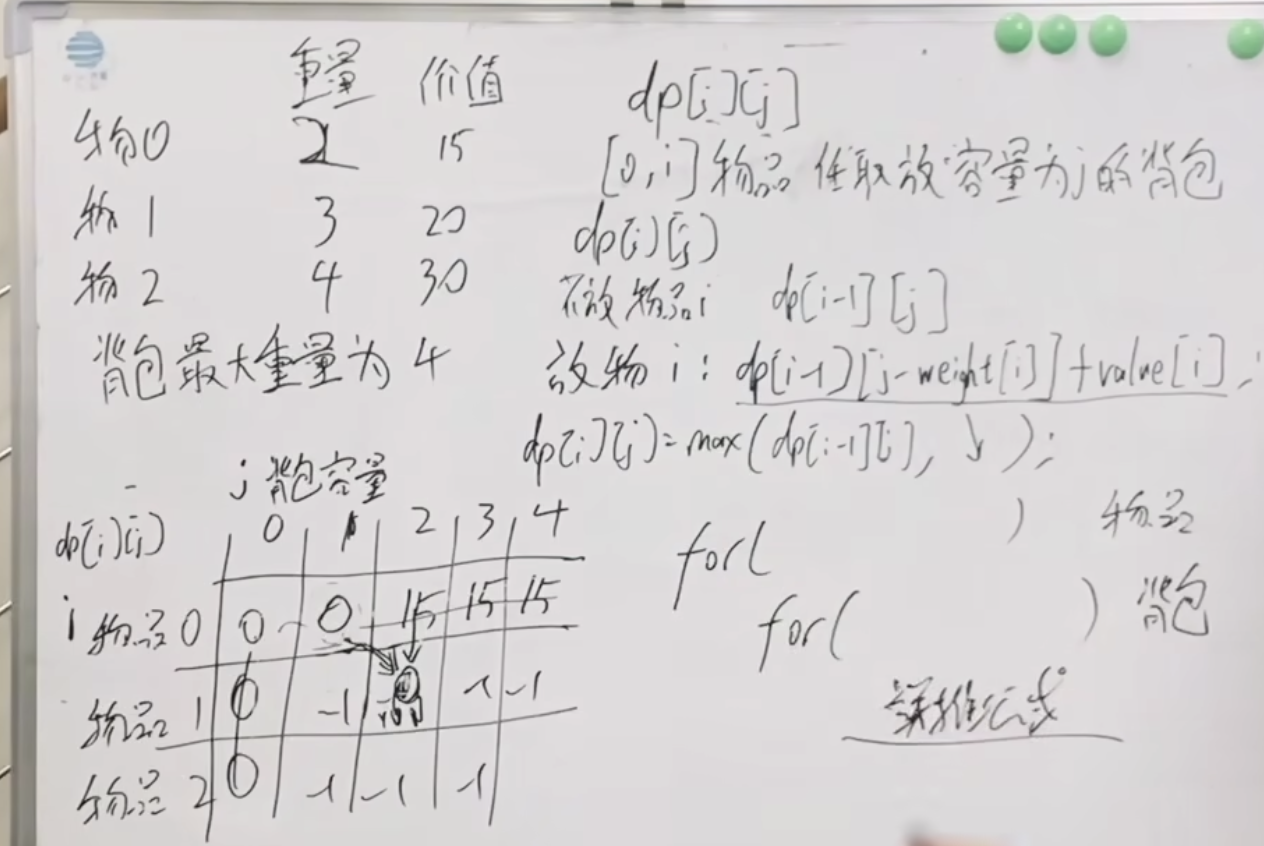 重量 价值
物0 2 15
物1 3 20
物2 4 30
背包最大重量为 4
dp[i][j]
[0,i]物品任取放容量为j的背包
dp[i][j]
不放物品i dp[i-1][j]
放物i: dp[i-1][j-weight[i]]+value[i];
dp[i][j]=max(dp[i-1][j], ↓ );
for( ) 物品
for( ) 背包
递推公式
j 背包容量
dp[i][j] 0 1 2 3 4
i 物品0 0 0 15 15 15
物品1 0 -1 -1 -1
物品2 0 -1 -1 -1